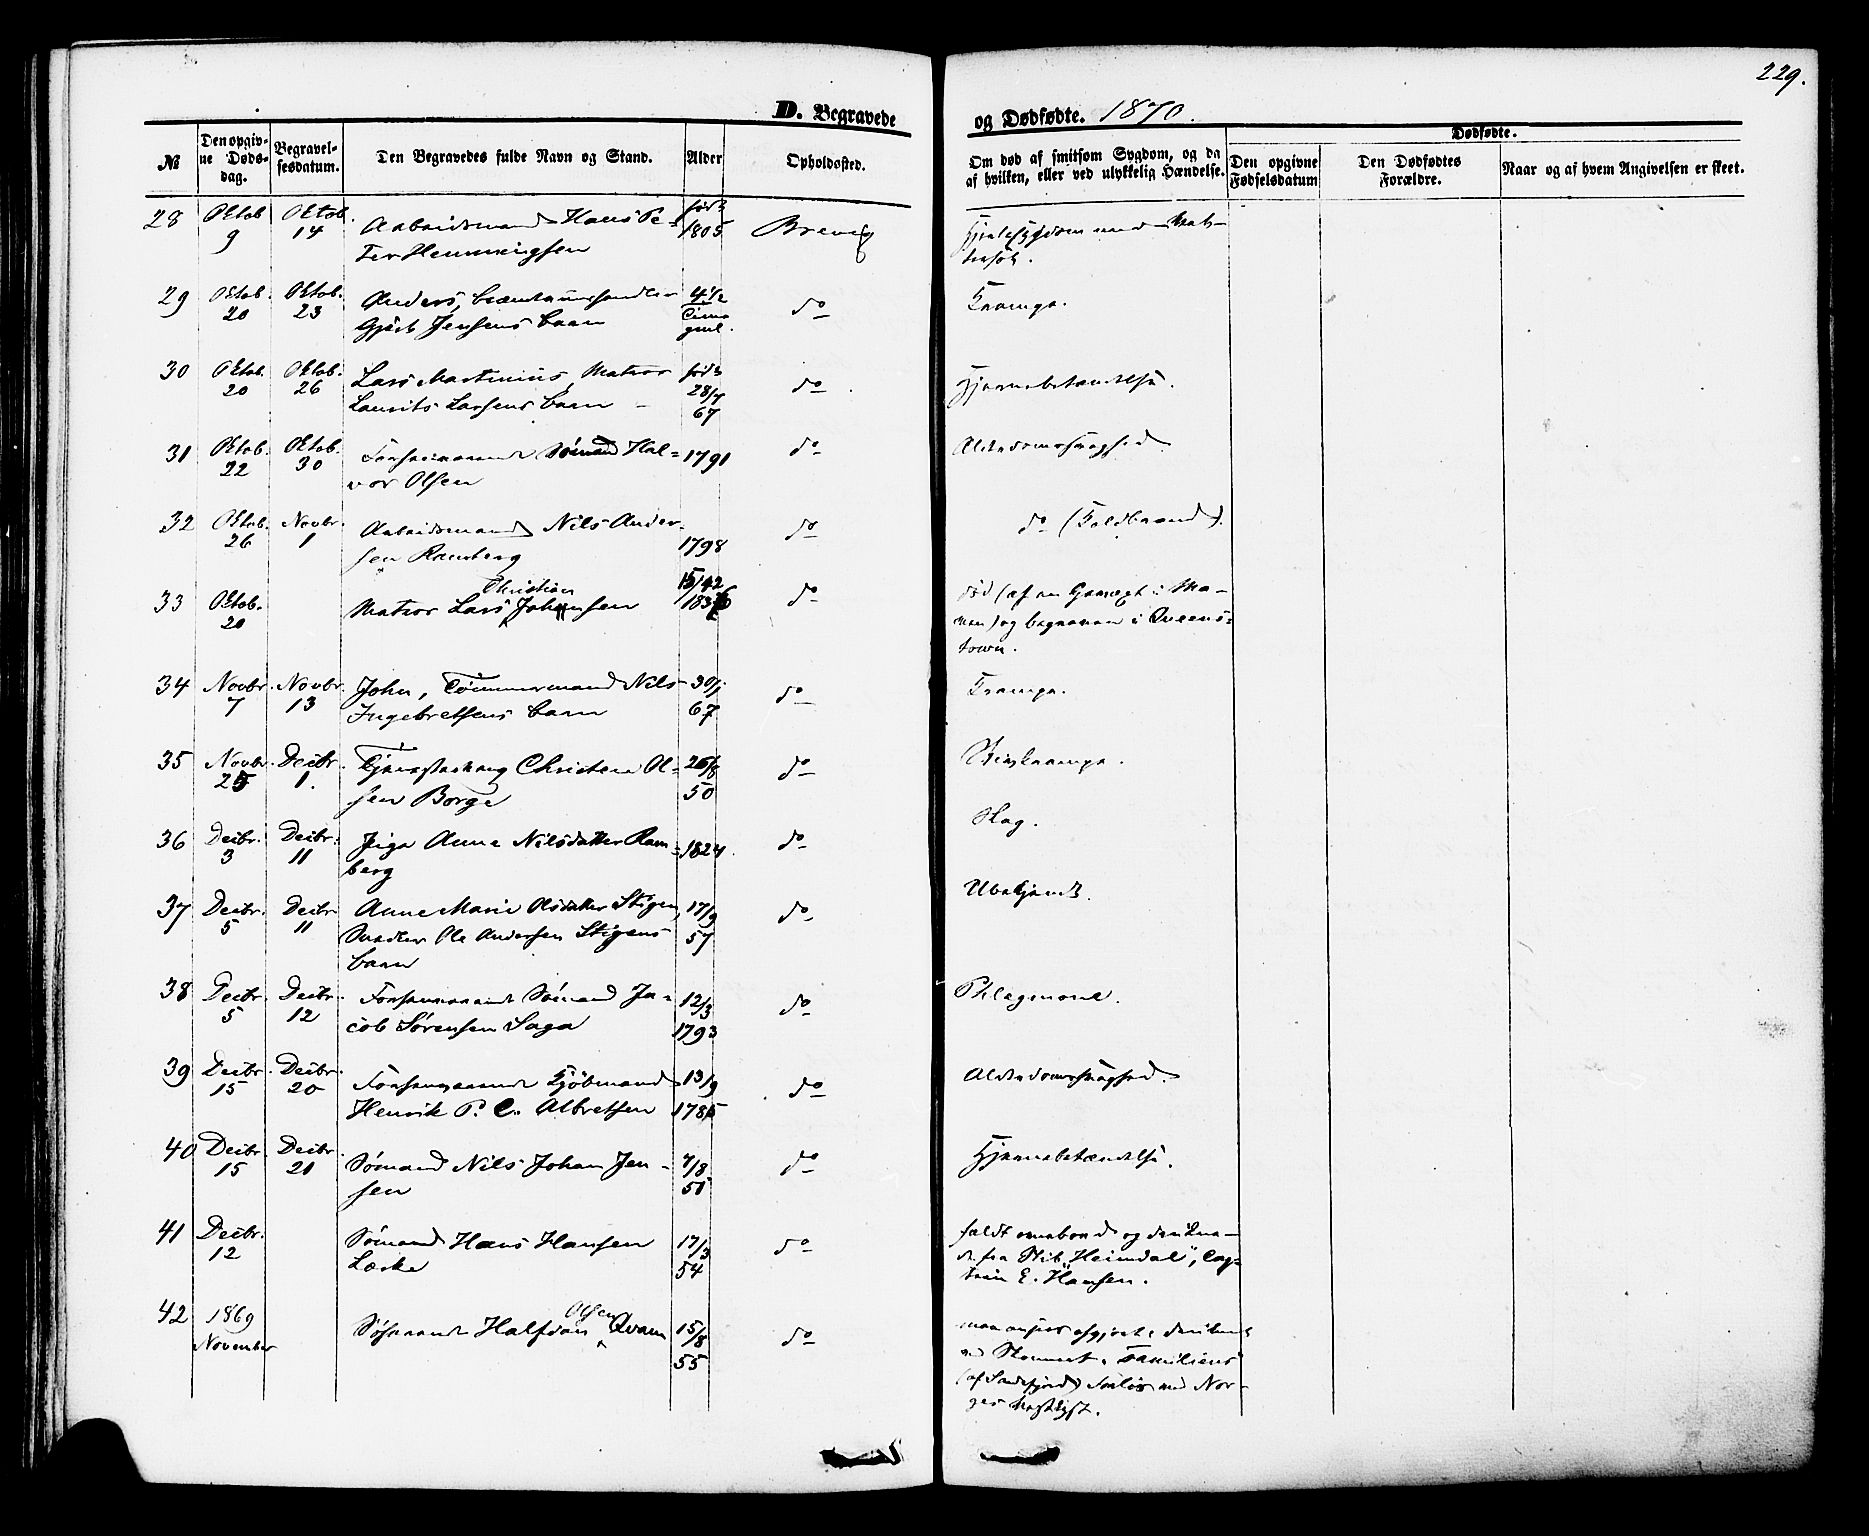 229.
D. Begravede
og Dødfødte. 1870.
No
Den opgiv-
ne Døds-
dag.
Begravel-
sesdatum.
Den Begravedes fulde Navn og Stand.
Alder
Opholdssted.
Om død af smitsom Sygdom, og da
af hvilken, eller ved ulykkelig Hændelse.
Dødfødte.
Den opgivne
Fødselsdatum
Den Dødfødtes
Forældre.
Naar og af hvem Angivelsen er skeet.
28 Oktob. 9 Oktob. 14 Arbeidsmand Hans Pe-
ter Henningsen
født 1805 Brevig
Hjertesygdom med Vat-
tersot.
29 Oktob. 20 Oktob. 23 Anders,
Gjert Jensens Barn
4 1/2 gml. do
Krampe.
30 Oktob. 20 Oktob. 26 Lars Martinius, Matros
Laurits Larsens Barn
født 28/7 67 do
Hjernebetændelse.
31 Oktob. 22 Oktob. 30 Forhenværende Sømand Hal-
vor Olsen
1791 do
Alderdomssvaghed
32 Oktob. 26 Novbr. 1 Arbeidsmand Nils Ander-
sen Ramberg
1798 do
do (Koldbrand).
33 Oktob. 20 Matros Lars Christian Johnsen
do
død (af en
) og begraven i Queens-
town.
34 Novbr. 7 Novbr. 13 John, Tømmermand Nils
Ingebretsens Barn
30/1 67 do
Krampe.
35 Novbr. 25 Decbr. 1. Christen Ol-
sen Borge
26/8 50 do
Stivkrampe.
36 Decbr. 3 Decbr. 11 Pige Anne Nilsdatter Ram-
berg
1824. do
Slag.
37 Decbr. 5 Decbr. 11 Anne Marie Olsdatter Stigen,
Snedker Ole Andersen Stigens
Barn
17/9 57 do
Ubekjendt.
38 Decbr. 5 Decbr. 12 Forhenværende Sømand Ja-
cob Sørensen Saga
12/3 1793 do
Phlegmone.
39 Decbr. 15 Decbr. 20 Forhenværende Kjøbmand
Henrik P. C. Albretsen
13/9 1785 do
Alderdomssvaghed.
40 Decbr. 15 Decbr. 21 Sømand Nils Johan Jen-
sen
7/8 51 do
Hjernebetændelse.
41 Decbr. 12 Sømand Hans Hansen
Lærke
17/3 54 do
faldt overbord og drukne-
de fra Skib „Heimdal", Cap-
tain E. Hansen.
42 1869 November Søfarende Halfdan Olsen Qvam
15/8 55 do
man anseer afgjort druknet
med Skonnert „Familiens"
(af Sandefjord) forliis ved Nor-
ges Vestkyst.